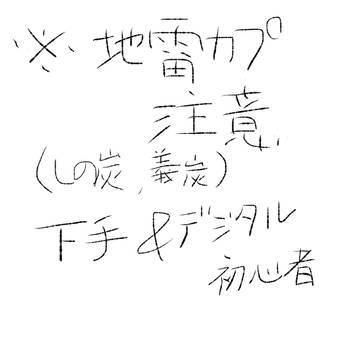 ※地雷カプ
注意
(しの炭、義炭)
下手&デジタル
初心者